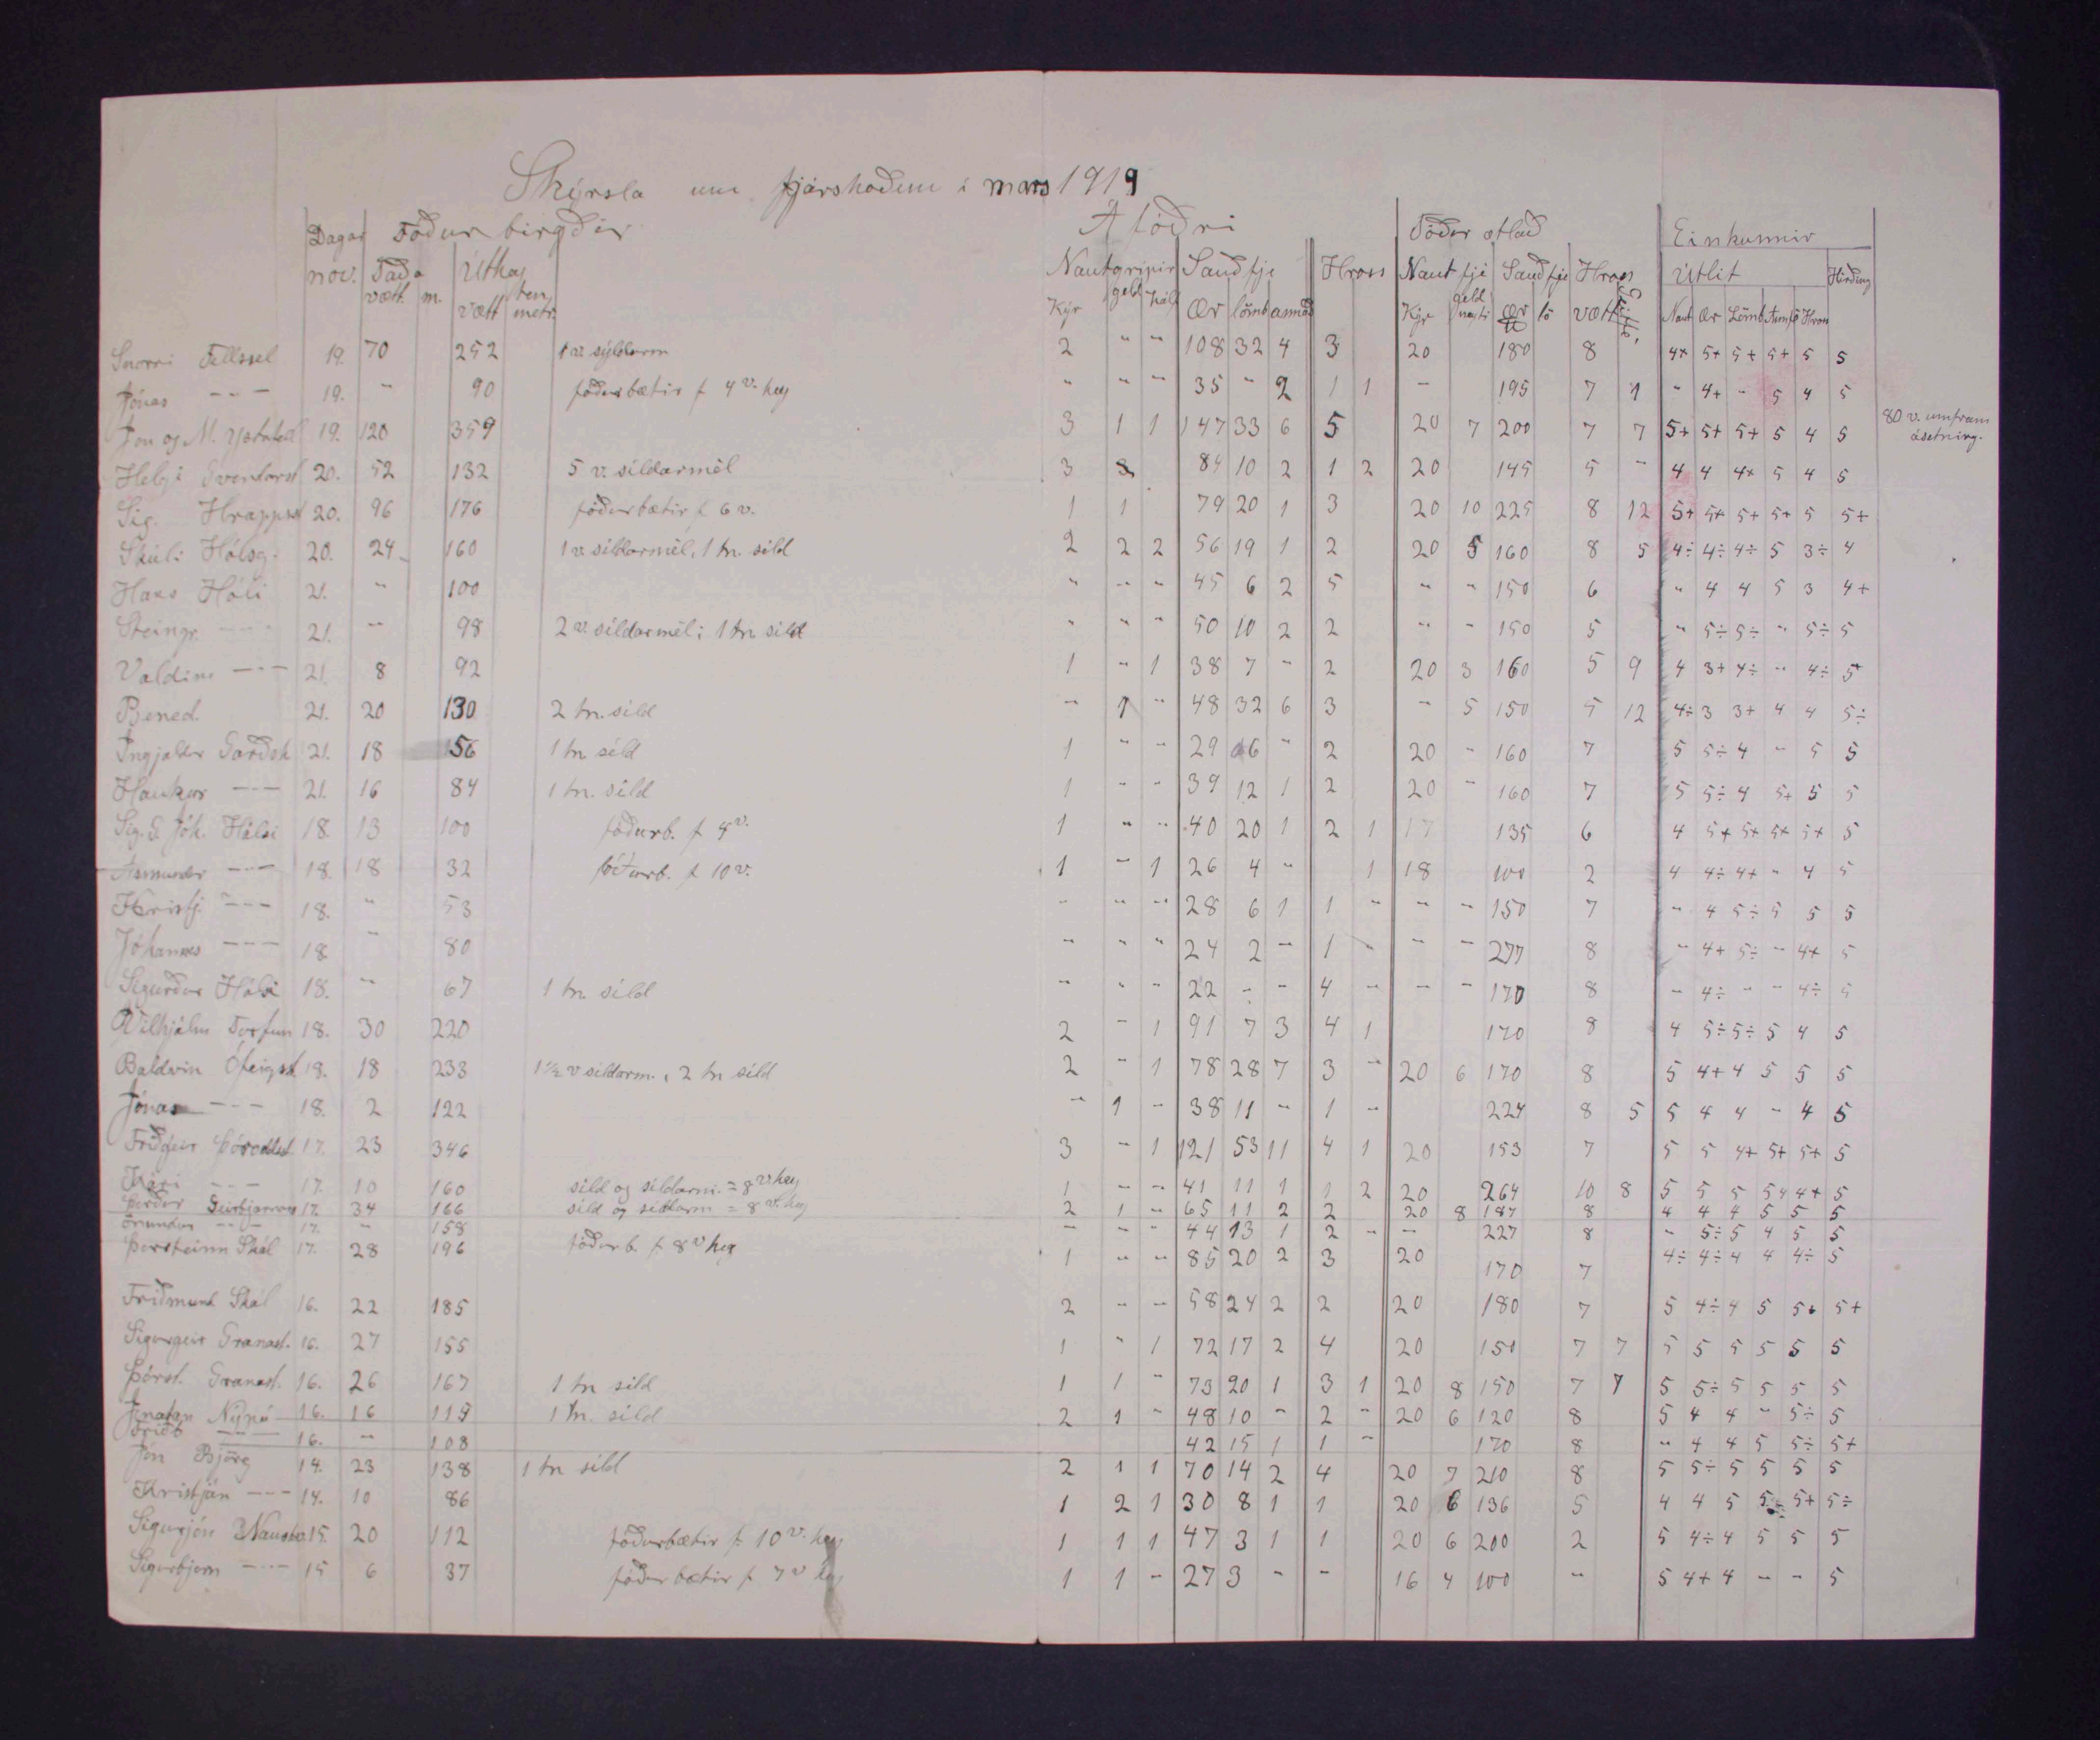 Skýrsla um fjárskoðun í mars 1919
Dagar Fóður birgðir Á fóðri Fóður ætlað Einkunnir
nov. Taða Úthey Nautgripir Sauðfje Hross Nautfje Sauðfje Hross Geitur Útlit Hirðing
vætt. m. vætt ten metr. Kýr geld kálf Ær lömb annað Kýr geld neyti ær lö vætt Naut Ær Lömb Ann fé Hross
Snorri Fellssel 19. 70 252 1 v. sýldarm 2 " " 108 32 4 3 20 180 8 4+ 5+ 5+ 5+ 5 5
Jónas - - - 19. " 90 fóðurbætir f 4 v. hey " " " 35 " 2 1 1 - 195 7 1 " 4+ - 5 4 5
Jón og M. Yztafell 19. 120 359 3 1 1 147 33 6 5 20 7 200 7 7 5+ 5+ 5+ 5 4 5 80 v. umfram
ásetning.
Helgi 20. 52 132 5 v. síldarmél 3 84 10 2 1 2 20 145 5 - 4 4 4+ 5 4 5
Sig. Hrappsst 20. 96 176 fóðurbætir f 6 v. 1 1 79 20 1 3 20 10 225 8 12 5+ 5+ 5+ 5+ 5 5+
Skúli Hólsg. 20. 24 160 1 v. síldarmél, 1 tn. síld 2 2 2 56 19 1 2 20 5 160 8 5 4÷ 4÷ 4÷ 5 3÷ 4
Hans Hóli 21. " 100 " " " 45 6 2 5 " " 150 6 " 4 4 5 3 4+
Steingr. - - - 21. " 98 2 v. síldarmél; 1 tn síld " " " 50 10 2 2 " - 150 5 " 5÷ 5÷ " 5÷ 5
Valdim - - - 21. 8 92 1 " 1 38 7 - 2 20 3 160 5 9 4 3+ 4÷ " 4÷ 5+
Bened. 21. 20 130 2 tn. síld " 1 " 48 32 6 3 - 5 150 5 12 4÷ 3 3+ 4 4 5÷
Ingjaldur Garðsh 21. 18 56 1 tn síld 1 " " 29 6 " 2 20 - 160 7 5 5÷ 4 - 5 5
Haukur - - - 21. 16 84 1 tn. síld 1 " " 39 12 1 2 20 - 160 7 5 5÷ 4 5+ 5 5
Sig. S. Jóh. Hálsi 18. 13 100 fóðurb. f 4 v. 1 " " 40 20 1 2 1 17 135 6 4 5+ 5+ 5+ 5+ 5
Ásmundur - - - 18. 18 32 fóðurb. f 10 v. 1 - 1 26 4 - 1 18 100 2 4 4÷ 4+ - 4 5
Kristj. - - - 18. " 53 " " " 28 6 1 1 - - - 150 7 - 4 5÷ 5 5 5
Jóhannes - - - 18. " 80 " " " 24 2 - 1 - - - 277 8 " 4+ 5÷ - 4+ 5
Sigurður Hálsi 18. " 67 1 tn. síld " " " 22 - - 4 - - - 170 8 - 4÷ - - 4÷ 5
Vilhjálm Torfun 18. 30 220 2 - 1 91 7 3 4 1 170 8 4 5÷ 5÷ 5 4 5
Baldvin Ófeigsst 18. 18 233 1 1/2 v síldarm., 2 tn síld 2 " 1 78 28 7 3 - 20 6 170 8 5 4+ 4 5 5 5
Jónas - - - 18. 2 122 " 1 - 38 11 - 1 - 224 8 5 5 4 4 - 4 5
Friðgeir Þóroddsst 17. 23 346 3 - 1 121 53 11 4 1 20 153 7 5 5 4+ 5+ 5+ 5
Kári - - - 17. 10 160 síld og síldarm. = 8 v. hey 1 - - 41 11 1 1 2 20 264 10 8 5 5 5 5 4 4+ 5
Þórður 17. 34 166 síld og síldarm = 8 v. hey 2 1 - 65 11 2 2 20 8 187 8 4 4 4 5 5 5
Önundur - - - 17. " 158 - - - 44 13 1 2 - - 227 8 - 5÷ 5 4 5 5
Þorsteinn Skál 17. 28 196 fóðurb. f 8 v hey 1 " - 85 20 2 3 20 170 7 4÷ 4÷ 4 4 4÷ 5
Friðmund Skál 16. 22 185 2 - - 58 24 2 2 20 180 7 5 4÷ 4 5 5+ 5+
Sigurgeir Granast. 16. 27 155 1 " 1 72 17 2 4 20 150 7 7 5 5 5 5 5 5
Þórst. Granast. 16. 26 167 1 tn síld 1 1 - 73 20 1 3 1 20 8 150 7 7 5 5÷ 5 5 5 5
Jónatan Nýpá 16. 16 119 1 tn. síld 2 1 - 48 10 - 2 - 20 6 120 8 5 4 4 - 5÷ 5
Friðb - - - 16. " 108 42 15 1 1 - 170 8 " 4 4 5 5÷ 5+
Jón Björg 14. 23 138 1 tn síld 2 1 1 70 14 2 4 20 7 210 8 5 5÷ 5 5 5 5
Kristján - - - 14. 10 86 1 2 1 30 8 1 1 20 6 136 5 4 4 5 5 5+ 5÷
Sigurjón Nausta 15. 20 112 fóðurbætir f 10 v. hey 1 1 1 47 3 1 1 20 6 200 2 5 4÷ 4 5 5 5
Sigurbjörn - - - 15 6 37 fóðurbætir f 7 v hey 1 1 - 27 3 - - 16 4 100 - 5 4+ 4 - - 5